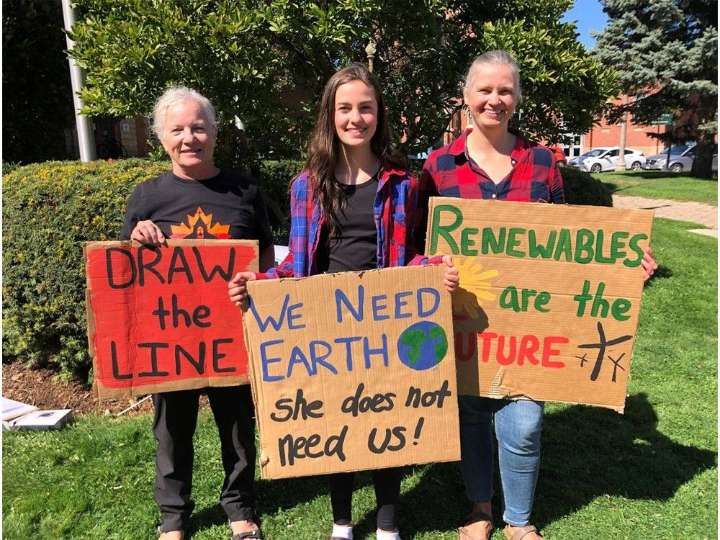 DRAW
the
LINE
WE NEED
EARTH
she does not
need us!
RENEWABLES
are the
FUTURE